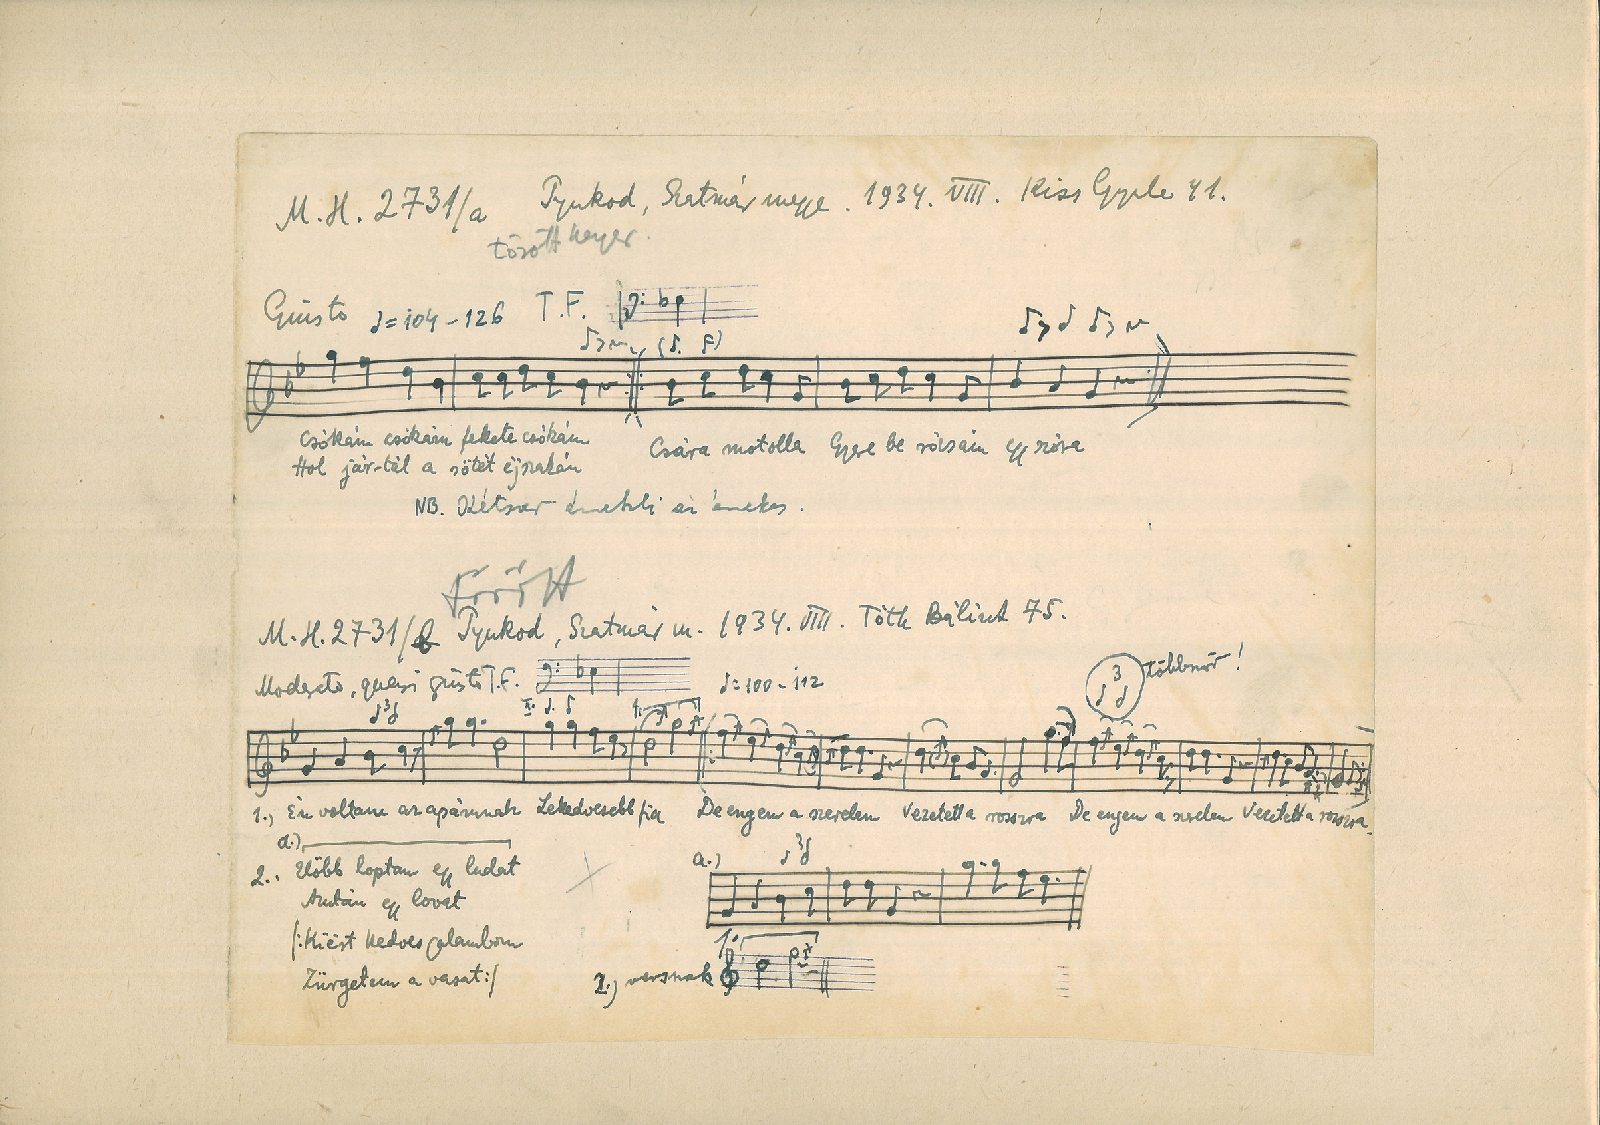 M. H. 2731/a Tyukod, Szatmár megye. 1934. VIII. Kiss Gyula 41.
törött henger.
Giusto ♩=104-126 T.F.
Csókám csókám fekete csókám Csára motolla Gyere be rózsám egy szóra
Hol jár-tál a sötét éjszakán
NB. Kétszer énekli az énekes.
törött
M. H. 2731/b Tyukod, Szatmár m. 1934. VIII. Tóth Bálint 75.
Moderato, quasi giusto T.F. ♩=100-112 3 többször!
3
1., Én voltam az apámnak Lekedvesebb fia De engem a szerelem Vezetett a rosszra De engem a szerelem Vezetett a rosszra
a.) a.) 3
2., Előbb loptam egy ludat
Azután egy lovat
/:Miért kedves galambom
1.
Zörgetem a vasat:/ 2.) versnek